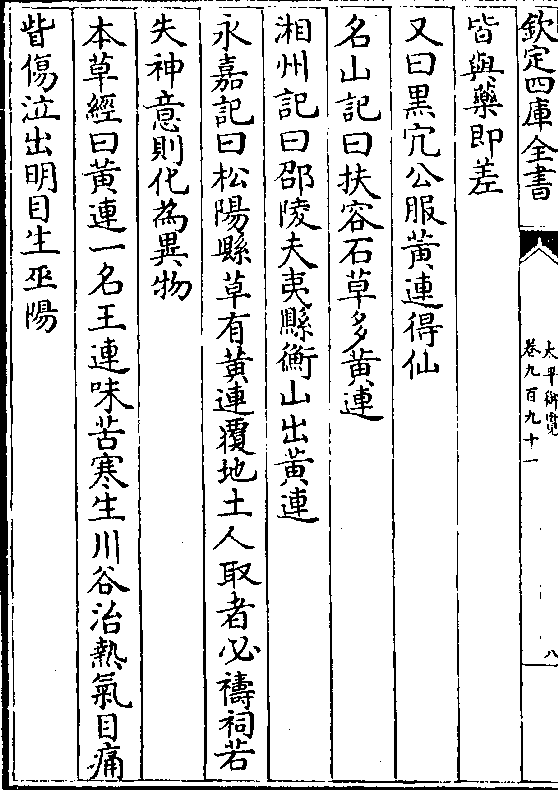 欽定四庫全書
太平御覽
卷九百九十一
八
皆與藥即差
又曰黒宂公服黄連得仙
名山記曰扶容石草多黄連
湘州記曰邵陵夫夷縣衡山出黄連
永嘉記曰松陽縣草有黄連覆地土人取者必禱祠若
失神意則化為異物
本草經曰黄連一名王連味苦寒生川谷治熱氣目痛
眥傷泣出明目生巫陽